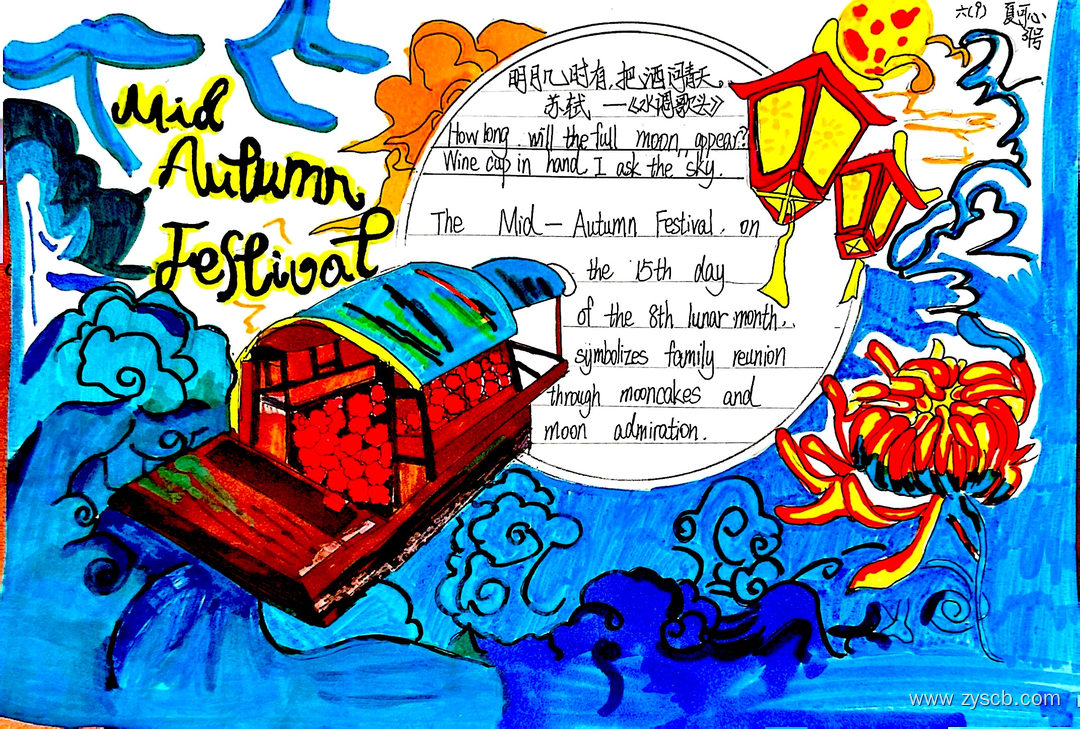 六(9) 夏可心
Mid
Autumn
Festival
明月几时有,把酒问青天。
苏轼 —《水调歌头》
How long will the full moon appear?
Wine cup in hand, I ask the sky.
The Mid-Autumn Festival, on
the 15th day
of the 8th lunar month,
symbolizes family reunion
through mooncakes and
moon admiration.
www.zyscb.com